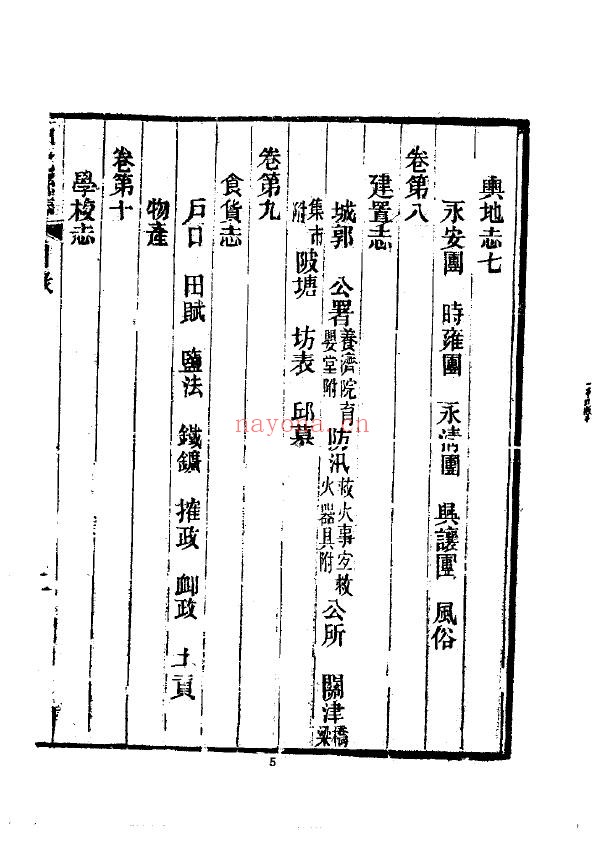 輿地志七
永安團 時雍團 永清團 興讓團 風俗
卷第八
建置志
城郭 公署養濟院育嬰堂附 防汛救火事宜救火器具附 公所 關津橋梁
集市附 陂塘 坊表 邱墓
卷第九
食貨志
戶口 田賦 鹽法 鐵鑛 搉政 卹政 土貢
物產
卷第十
學校志
目錄
5
nayona.cn